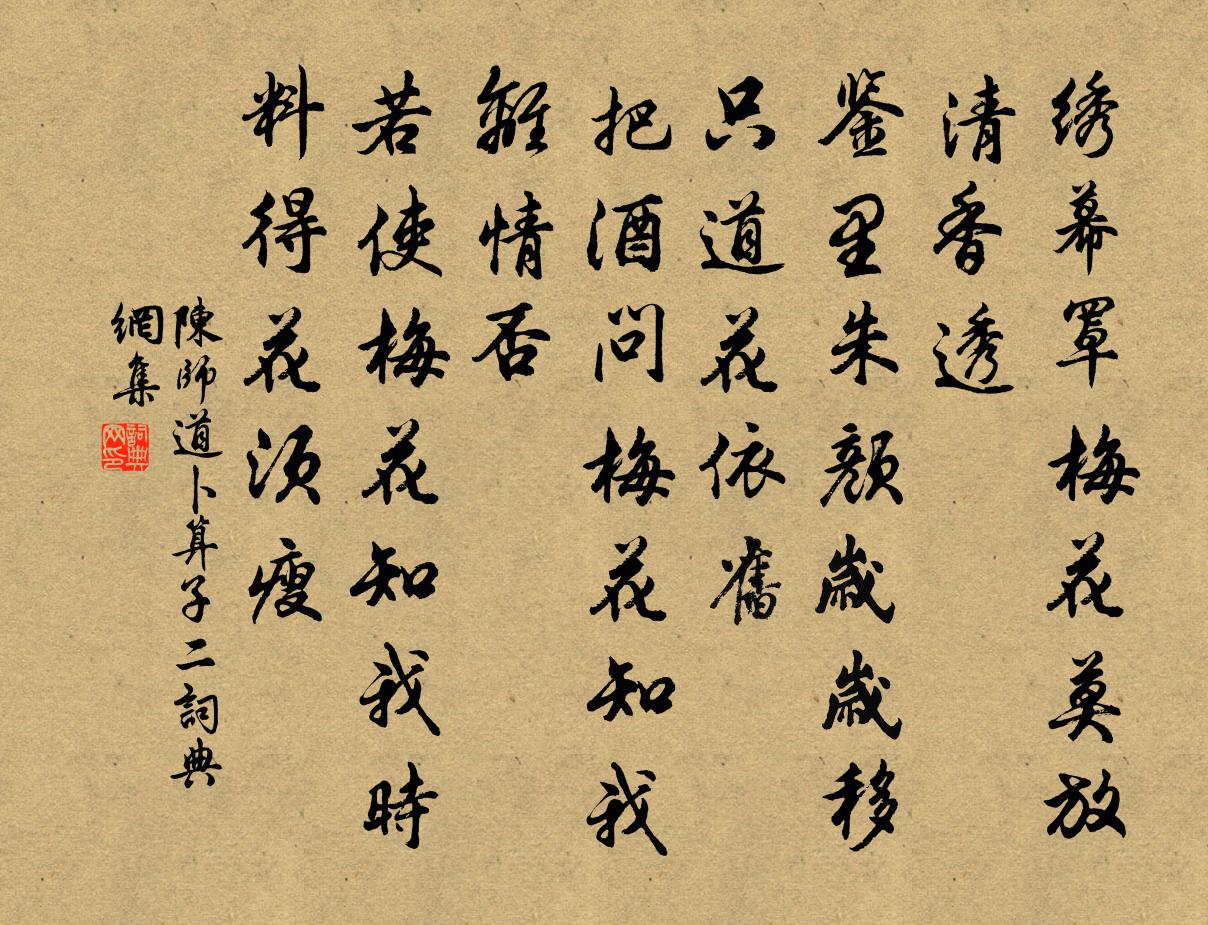 绣幕罩梅花莫放
清香透
鉴里朱颜歲歲移
只道花依舊
把酒問梅花知我
離情否
若使梅花知我時
料得花須瘦
陳師道卜算子二詞典
網集
詞典
网印